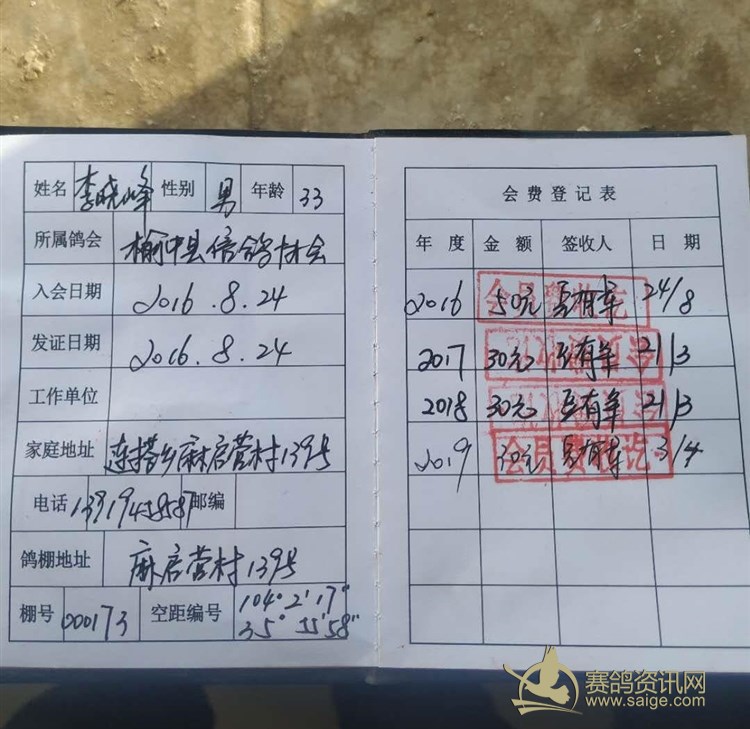 姓名 李晓峰 性别 男 年龄 33
所属鸽会 榆中县信鸽协会
入会日期 2016.8.24
发证日期 2016.8.24
工作单位
家庭地址 连搭乡麻启营村139号
电话 邮编
鸽棚地址 麻启营村139号
棚号 000173 空距编号 104°2'17"
35°55'58"
会费登记表
年度 金额 签收人 日期
2016 50元 24/8
2017 30元 21/3
2018 30元 21/3
2019 30元 3/4
赛鸽资讯网
www.saige.com